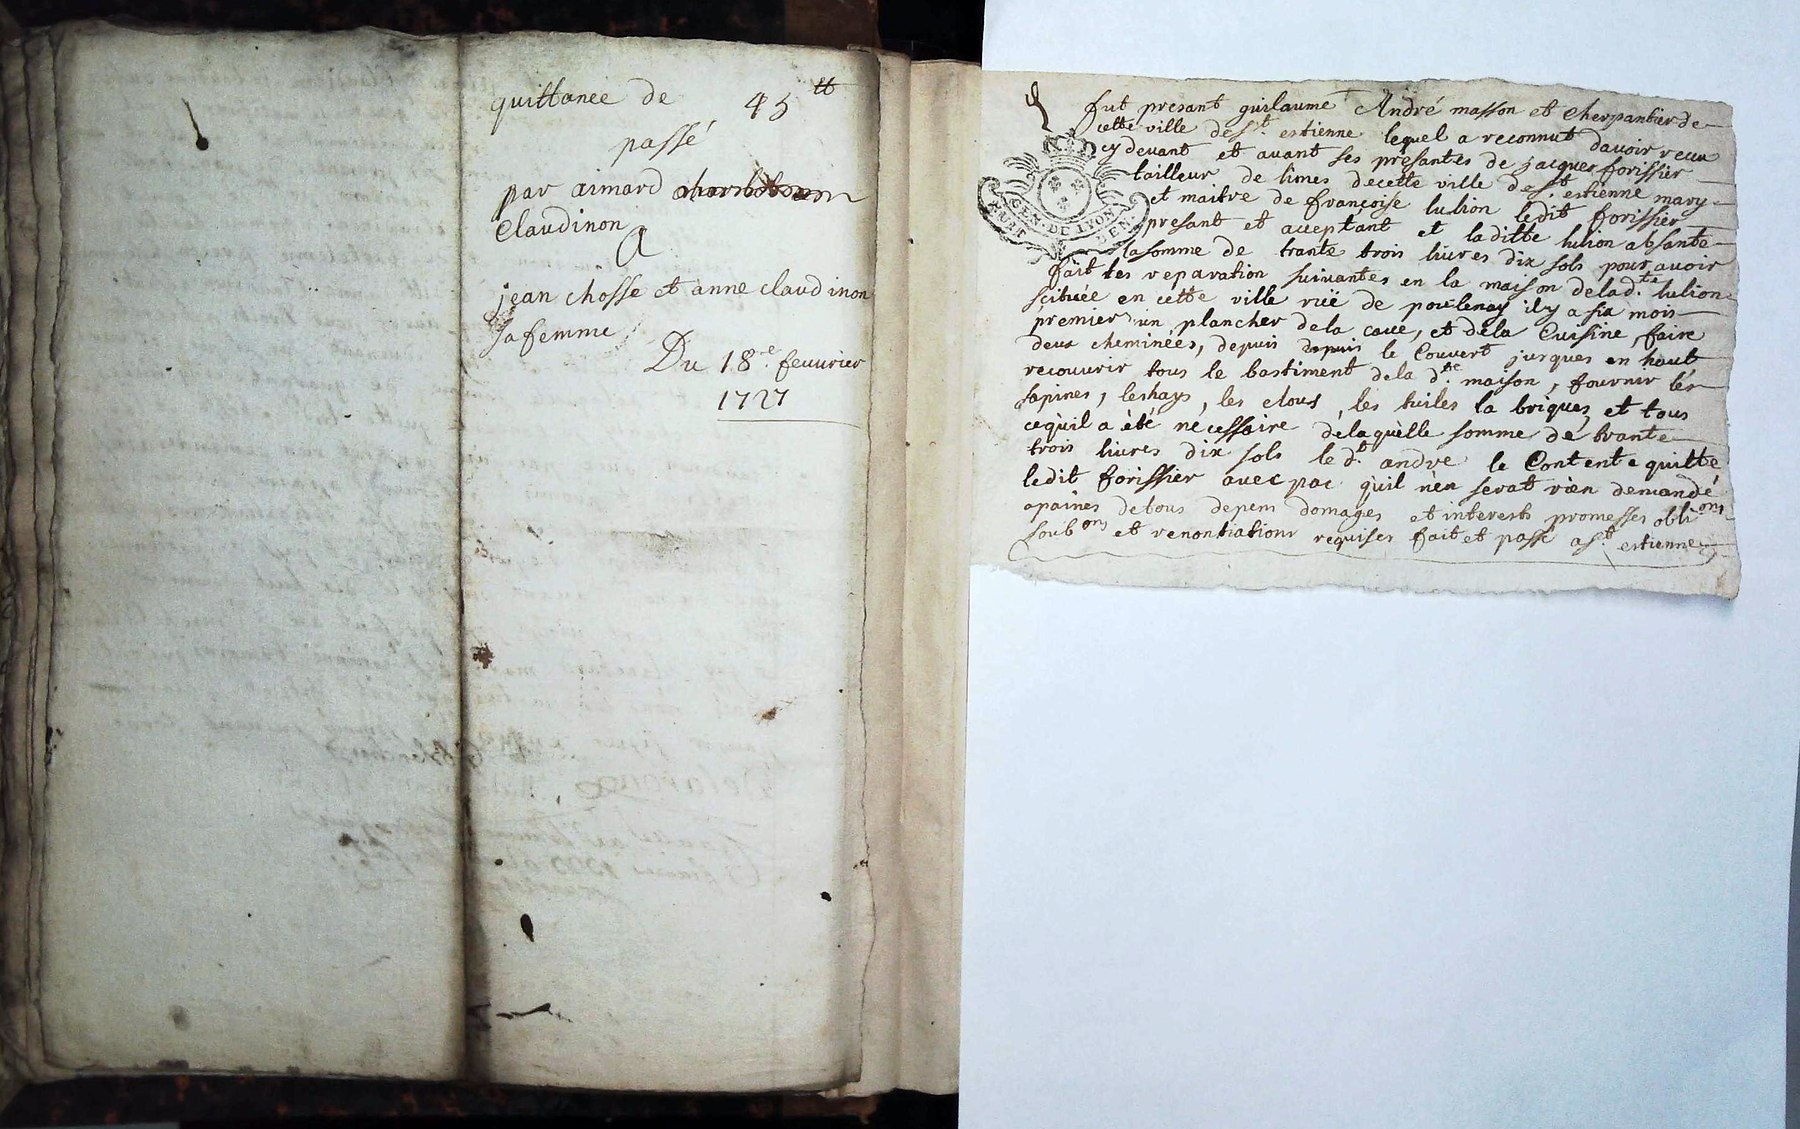 quittance de 45 tt
passé
par aimard
Claudinon
A
jean chosse et anne claudinon
sa femme
Du 18.e feuurier
1727
fut presant guilaume André masson et cherpantier de
cette ville de St. estienne lequel a reconnut dauoir recu
cy deuant et auant ses presantes de jacques forissier
tailleur de limes decette ville de St estienne mary
et maitre de françoise lulion ledit forissier
present et acceptant et laditte lulion absante
GEN. DE LYON
lasomme de trante trois liures dix sols pour auoir
fait les reparation suiuantes en la maison delad.te lulion
scituée en cette ville ruë de poulenas il y a six mois
premier un plancher dela caue, et dela Cuisine, faire
deux cheminées, depuis depuis le Couvert jusques en haut
recouurir tous le bastiment dela d.te maison, fournir lés
sapines, leshays, les clous, les tuiles la briques, et tous
cequil a èté nécessaire delaquèlle somme dé trante
trois liures dix sols le d.t andre le Content e quitte
ledit forissier auec pac quil nen serat rien demandé
apaines detous depens domages et interests promesses obli.ons
soub.ons et renontiations requises fait et passé a St. estienne